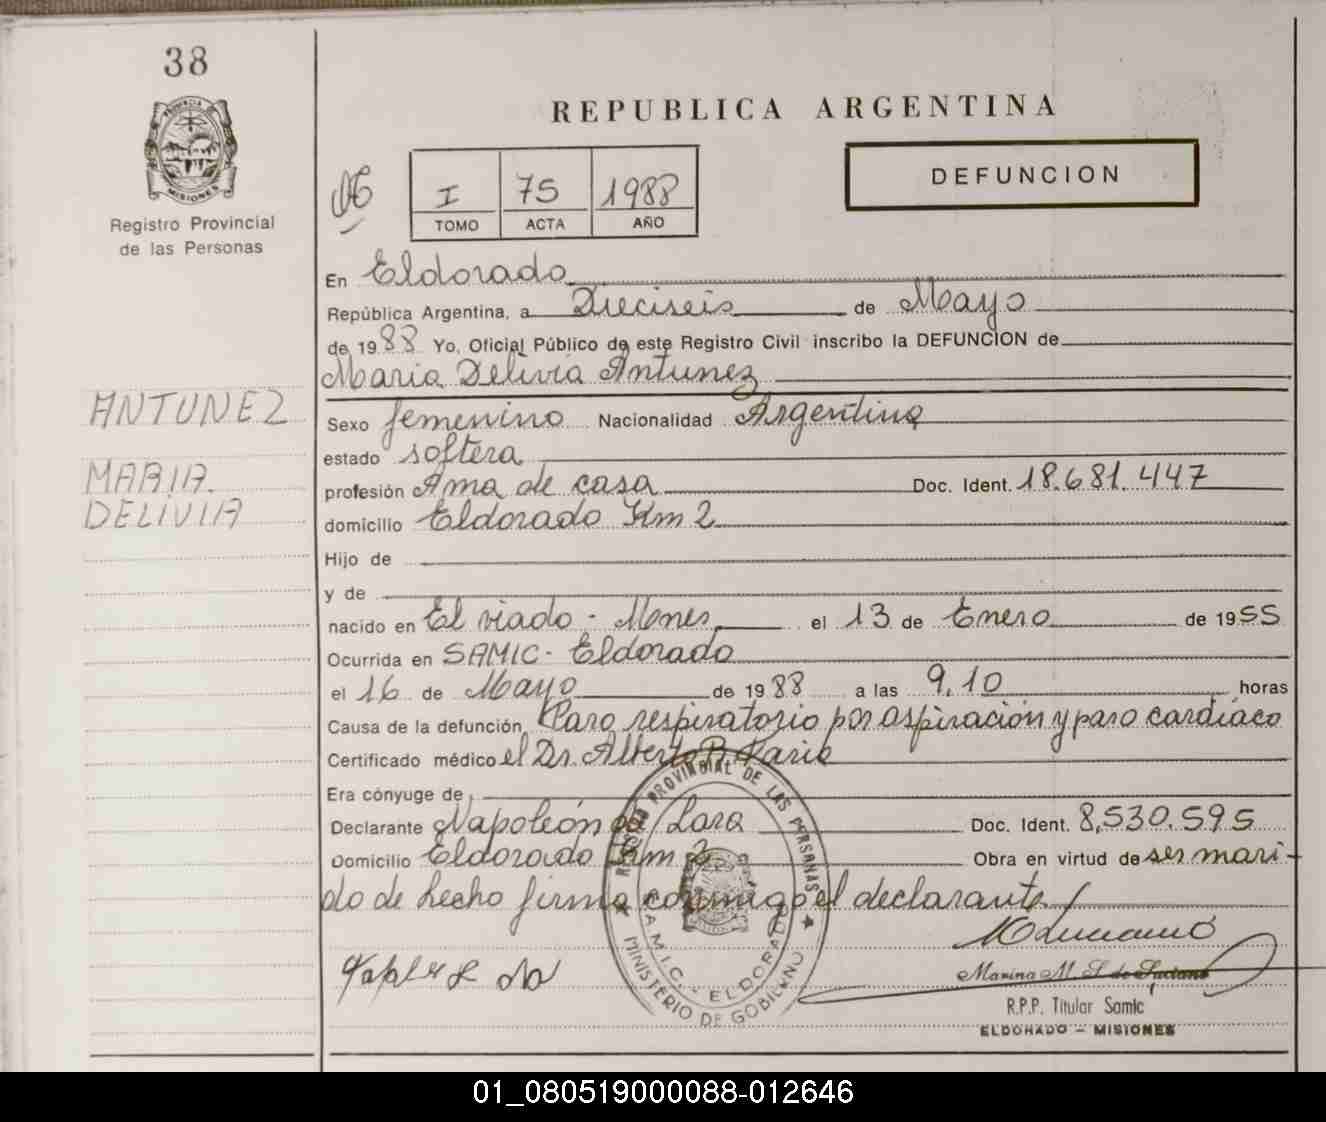 38
PROVINCIA DE
MISIONES
Registro Provincial
de las Personas
REPUBLICA ARGENTINA
DEFUNCION
I 75 1988
TOMO ACTA AÑO
En Eldorado
República Argentina, a Dieciseis de Mayo
de 1988 Yo, Oficial Público de este Registro Civil inscribo la DEFUNCION de
Maria Delivia Antunez
ANTUNEZ
MARIA
DELIVIA
Sexo femenino Nacionalidad Argentina
estado soltera
profesión Ama de casa Doc. Ident. 18.681.447
domicilio Eldorado Km 2
Hijo de
y de
nacido en El viado - Mnes el 13 de Enero de 1955
Ocurrida en SAMIC - Eldorado
el 16 de Mayo de 1988 a las 9,10 horas
Causa de la defunción Paro respiratorio por aspiración y paro cardíaco
Certificado médico el Dr. Alberto
Era cónyuge de
Declarante Napoleón Lara Doc. Ident. 8,530.595
Domicilio Eldorado Km 2 Obra en virtud de ser mari-
do de hecho firma conmigo el declarante
REGISTRO PROVINCIAL DE LAS PERSONAS
S.A.M.I.C. - ELDORADO
MINISTERIO DE GOBIERNO
Marina M. de
R.P.P. Titular Samic
ELDORADO - MISIONES
01_080519000088-012646